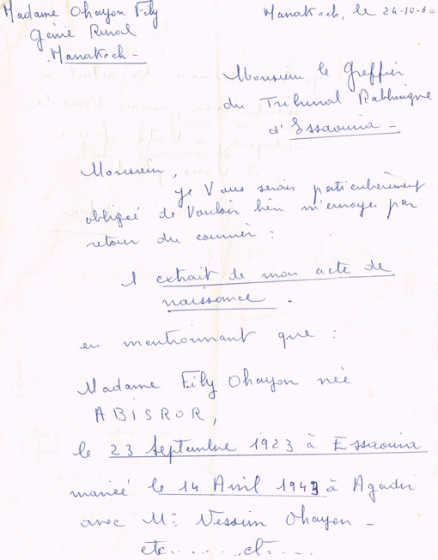 Madame Ohayon Fily
Génie Rural
Marrakech -
Marrakech, le 24-10-60
Monsieur le Greffier
du Tribunal Rabbinique
d'Essaouira -
Monsieur,
Je Vous serais particulièrement
obligée de Vouloir bien m'envoyer par
retour du courrier :
1 extrait de mon acte de
naissance .
en mentionnant que :
Madame Fily Ohayon née
ABISROR,
le 23 Septembre 1923 à Essaouira
mariée le 14 Avril 1943 à Agadir
avec Mr Nessim Ohayon -
etc..... ect....